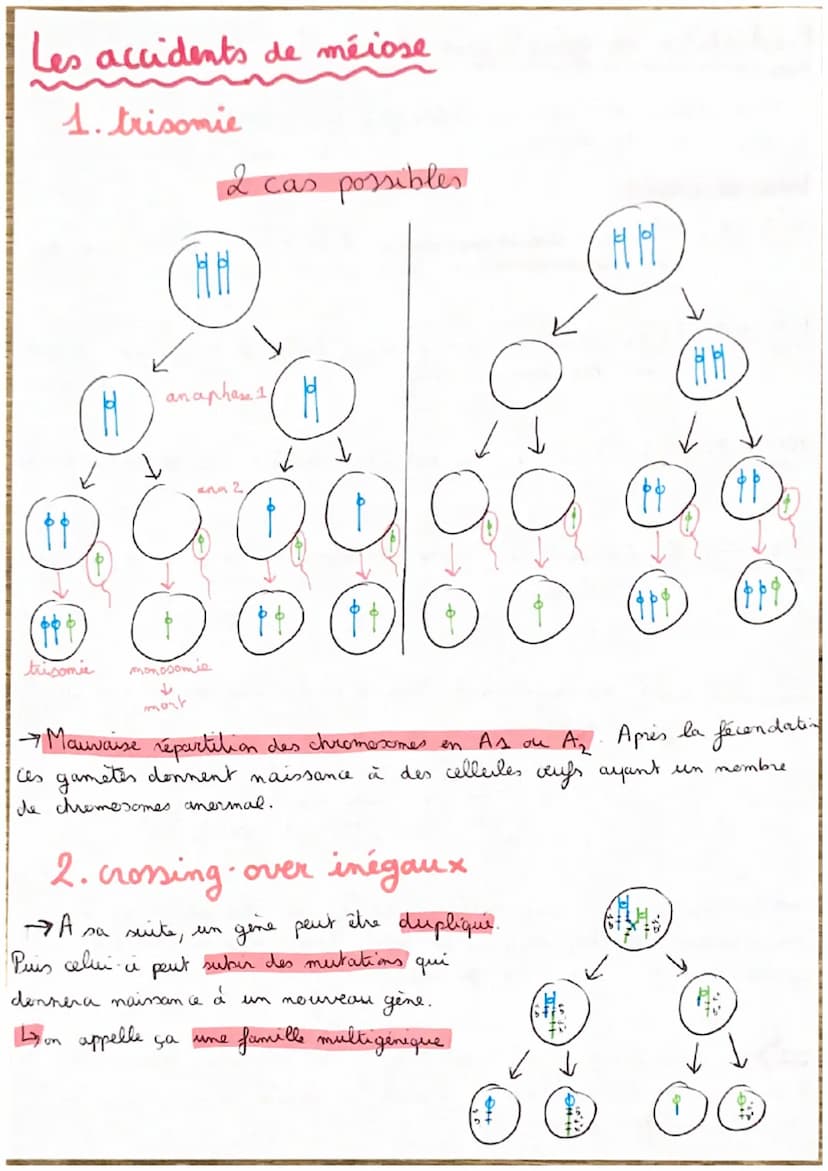 Les accidents de méiose
1. trisomie
2 cas possibles
anaphase 1
ana 2
trisomie
monosomie
↓
mort
→ Mauvaise répartition des chromosomes en A1 ou A2. Après la fécondation
ces gamètes donnent naissance à des cellules œufs ayant un nombre
de chromosomes anormal.
2. crossing-over inégaux
→ A sa suite, un gène peut être dupliqué.
Puis celui-ci peut subir des mutations qui
donnera naissance à un nouveau gène.
↳ on appelle ça une famille multigénique